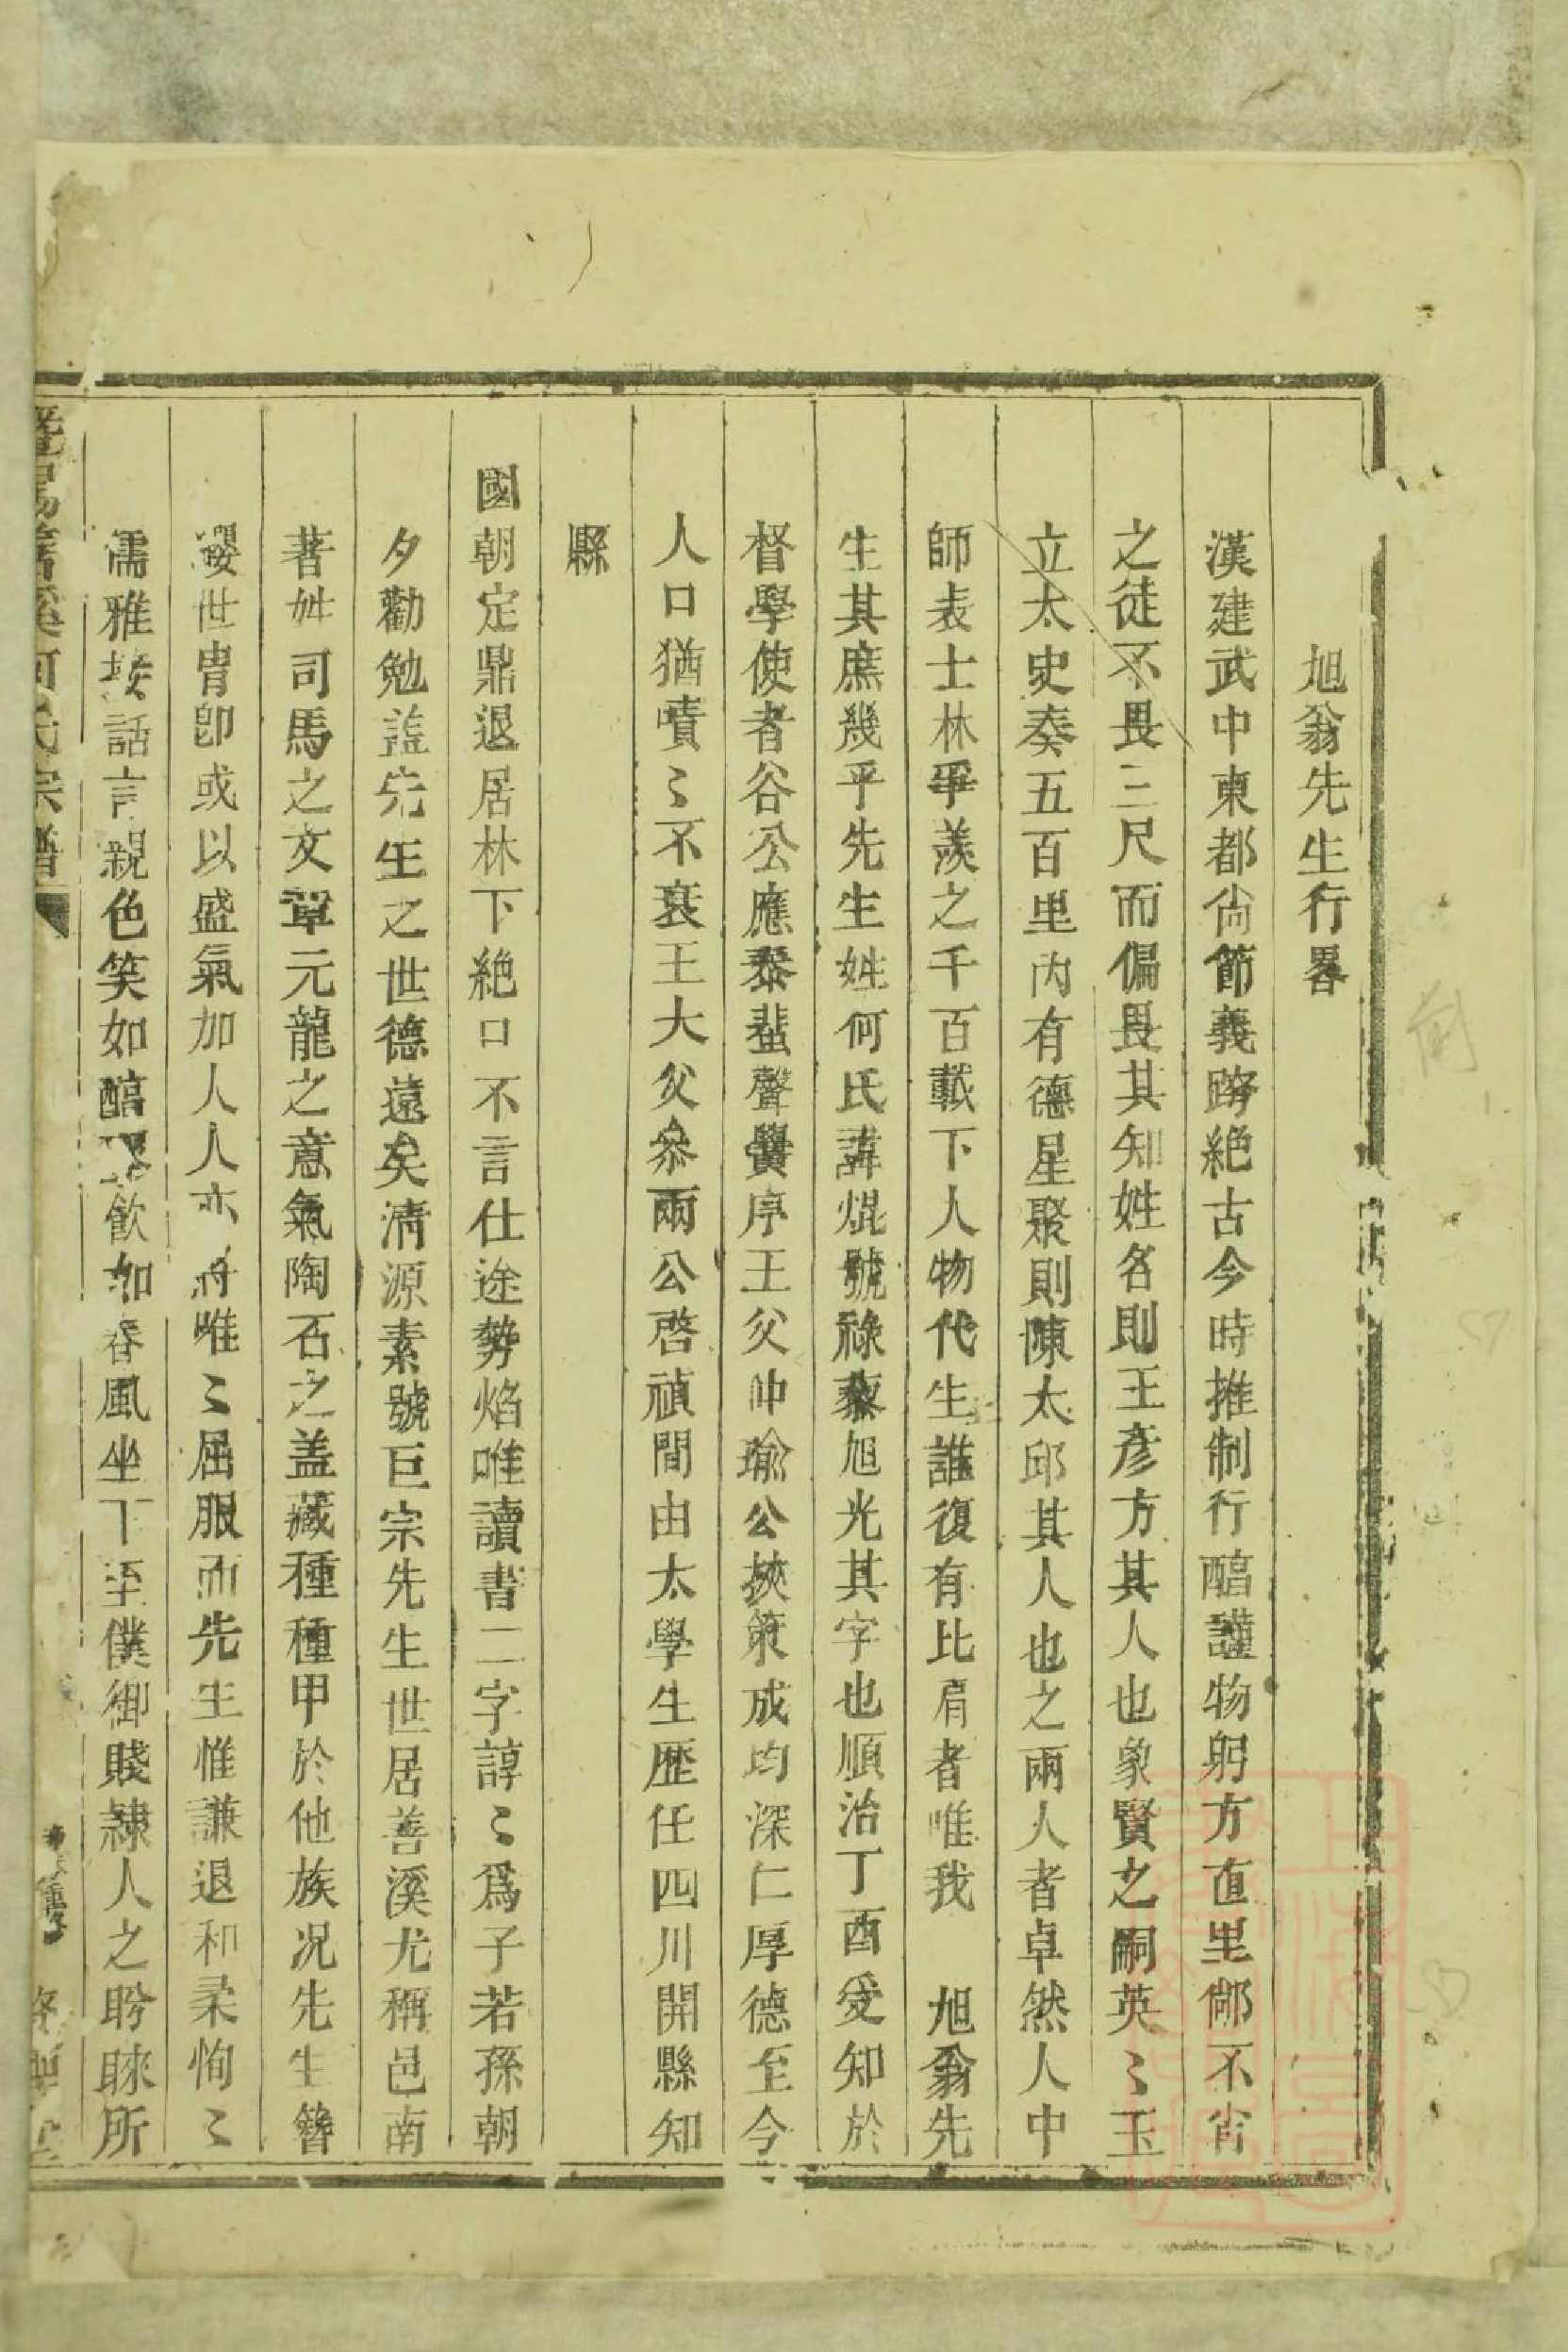 旭翁先生行畧
漢建武中東都尙節義跨絶古今時推制行醕謹物躬方直里鄰不肯
之徒不畏三尺而偏畏其知姓名則王彥方其人也象賢之嗣英〻玉
立太史奏五百里內有德星聚則陳太邱其人也之兩人者卓然人中
師表士林爭羨之千百載下人物代生誰復有比肩者唯我 旭翁先
生其庶幾乎先生姓何氏諱焜號祿藜旭光其字也順治丁酉受知於
督學使者谷公應泰蜚聲黌序王父仲瑜公挾策成均深仁厚德至今
人口猶嘖〻不衰王大父叅兩公啓禎間由太學生歷任四川開縣知
縣
國朝定鼎退居林下絶口不言仕途勢焰唯讀書二字諄〻爲子若孫朝
夕勸勉葢先生之世德遠矣淸源素號巨宗先生世居善溪尤稱邑南
著姓司馬之文章元龍之意氣陶石之盖藏種種甲於他族况先生簪
纓世胄卽或以盛氣加人人亦唯〻屈服而先生惟謙退和柔恂〻
儒雅接話言親色笑如醕飮如春風坐下至僕御賤隷人之盼睞所
暨陽善溪何氏宗譜